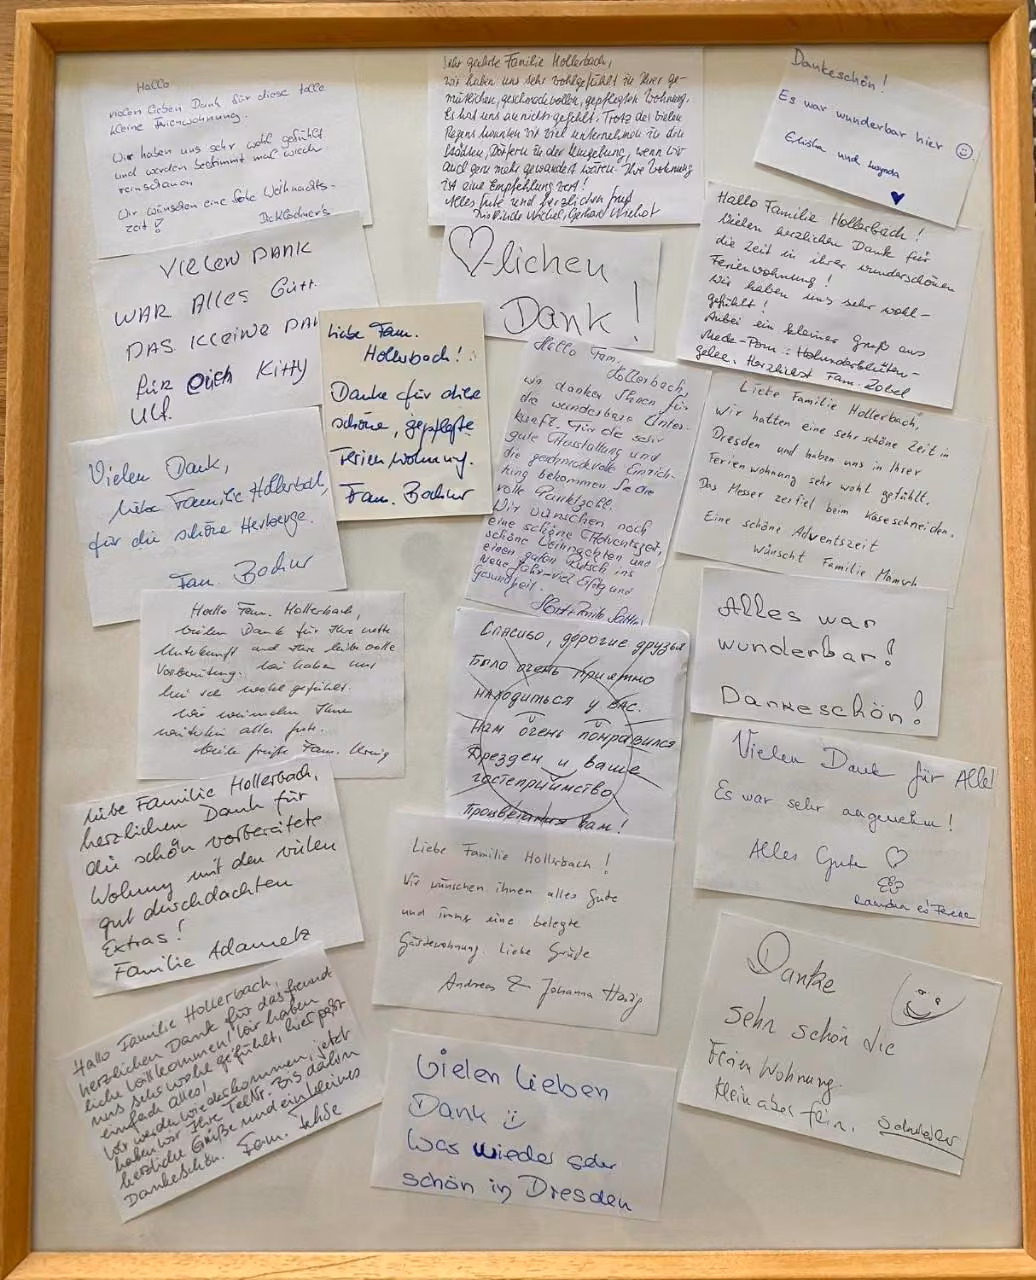 Hallo
vielen lieben Dank für diese tolle
kleine Ferienwohnung.
Wir haben uns sehr wohl gefühlt
und werden bestimmt mal wieder
reinschauen
Wir wünschen eine frohe Weihnachts-
zeit!
Sehr geehrte Familie Hollerbach,
wir haben uns sehr wohlgefühlt in Ihrer ge-
mütlichen, geschmackvollen, gepflegten Wohnung.
Es hat uns an nichts gefehlt. Trotz des vielen
Regens konnten wir viel unternehmen in den
Städten, Dörfern in der Umgebung, wenn wir
auch gern mehr gewandert wären. Ihre Wohnung
ist eine Empfehlung wert!
Alles Gute und herzlichen Gruß
Gerhard
Dankeschön!
Es war wunderbar hier ☺
und
♥
VIELEN DANK
WAR ALLES Gut.
DAS KLEINE DA
FÜR EUCH KITTY
Ulf.
♡-lichen
Dank!
Hallo Familie Hollerbach!
Vielen herzlichen Dank für
die Zeit in ihrer wunderschönen
Ferienwohnung!
Wir haben uns sehr wohl-
gefühlt!
Anbei ein kleiner Gruß aus
Holunderblüten-
gelee. Herzlichst Fam. Zobel
Liebe Fam.
Hollerbach!
Danke für die
schöne, gepflegte
Ferienwohnung.
Fam. Bochur
Hallo Fam.
Hollerbach,
wir danken Ihnen für
die wunderbare Unter-
kunft. Für die sehr
gute Ausstattung und
die geschmackvolle Einrich-
tung bekommen Sie die
volle Punktzahl.
Wir wünschen noch
eine schöne Adventszeit,
schöne Weihnachten und
einen guten Rutsch ins
neue Jahr-viel Erfolg und
Gesundheit.
Liebe Familie Hollerbach,
Wir hatten eine sehr schöne Zeit in
Dresden und haben uns in Ihrer
Ferienwohnung sehr wohl gefühlt.
Das Messer zerfiel beim Käseschneiden.
Eine schöne Adventszeit
wünscht Familie
Vielen Dank,
liebe Familie Hollerbach,
für die schöne Herberge.
Fam. Bochur
Hallo Fam. Hollerbach,
vielen Dank für Ihre nette
Unterkunft und Ihre liebevolle
Vorbereitung. Wir haben uns
sehr wohl gefühlt.
Wir wünschen Ihnen
weiterhin alles gute.
Fam. König
Спасибо, дорогие друзья
Было очень приятно
находиться у вас.
Нам очень понравился
Дрезден и ваше
гостеприимство
Процветания вам!
Alles war
wunderbar!
Dankeschön!
Vielen Dank für Alles!
Es war sehr angenehm!
Alles Gute ♡
és Ferenc
Liebe Familie Hollerbach,
herzlichen Dank für
die schön vorbereitete
Wohnung mit den vielen
gut durchdachten
Extras!
Familie Adametz
Liebe Familie Hollerbach!
Wir wünschen ihnen alles Gute
und immer eine belegte
Gästewohnung. Liebe Grüße
Andreas & Johanna
Danke
sehr schön die
Ferien Wohnung.
Klein aber fein.
Hallo Familie Hollerbach,
herzlichen Dank für das freund
liche Willkommen! Wir haben
uns sehr wohl gefühlt, hier passt
einfach alles!
Wir werden wiederkommen, jetzt
haben wir Ihre TelNr. Bis dahin
herzliche Grüße und ein kleines
Dankeschön. Fam.
Vielen lieben
Dank ☺
Was wieder sehr
schön in Dresden